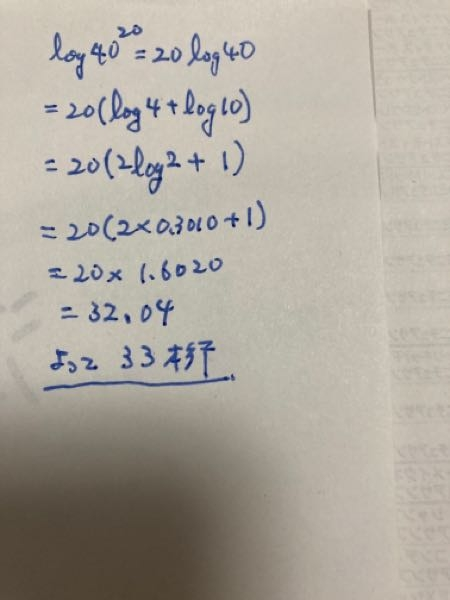 log40²⁰=20log40
=20(log4+log10)
=20(2log2+1)
=20(2×0.3010+1)
=20×1.6020
=32.04
よって 33桁